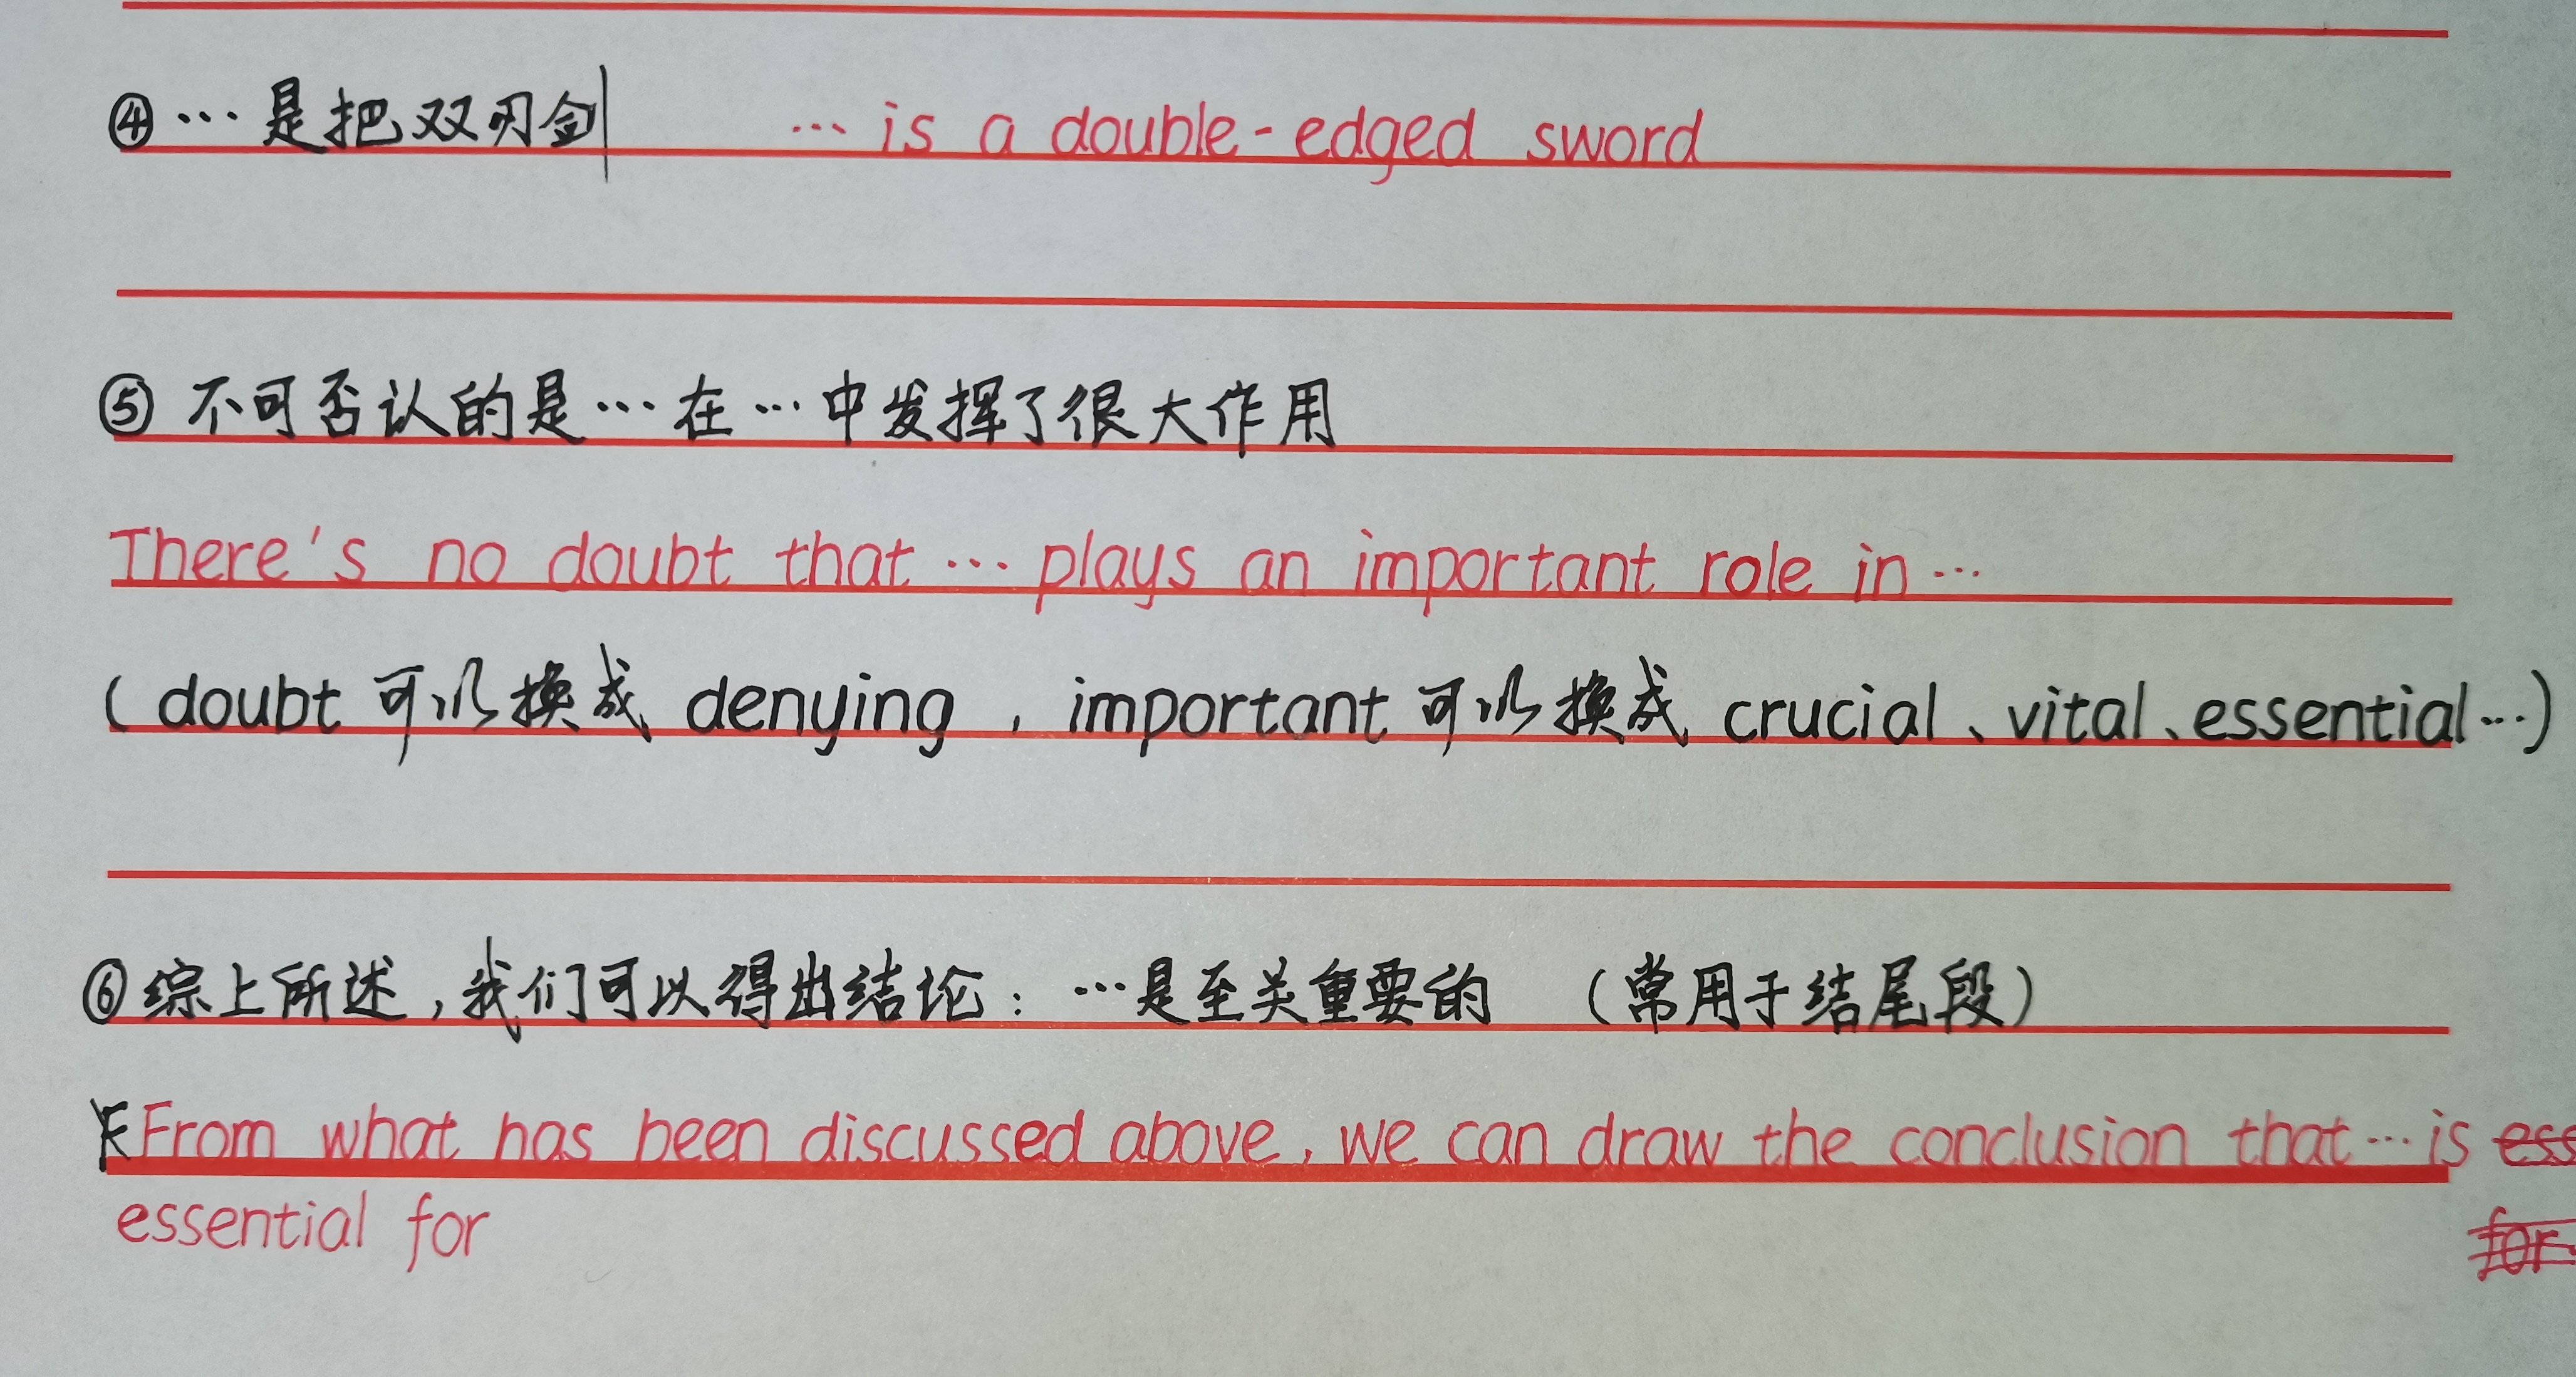 ④…是把双刃剑 …is a double-edged sword
⑤ 不可否认的是…在…中发挥了很大作用
There's no doubt that…plays an important role in…
(doubt 可以换成 denying , important 可以换成 crucial、vital、essential…)
⑥综上所述,我们可以得出结论: …是至关重要的 (常用于结尾段)
From what has been discussed above, we can draw the conclusion that…is ess
essential for for